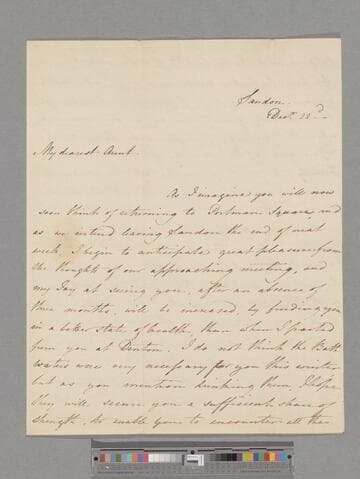 Sandon.
Decr. 22d.
My dearest Aunt.
As I imagine you will now
soon think of returning to Portman Square, and
as we intend leaving Sandon the end of next
week, I begin to anticipate great pleasure from
the thoughts of our approaching meeting, and
my Joy at seeing you, after an absence of
three months, will be increased, by finding you
in a better state of health, than when I parted
from you at Denton. I do not think the Bath
waters were very necessary for you this winter
but as you mention drinking them, I hope
they will secure you a sufficient share of
strength, to enable you to encounter all the